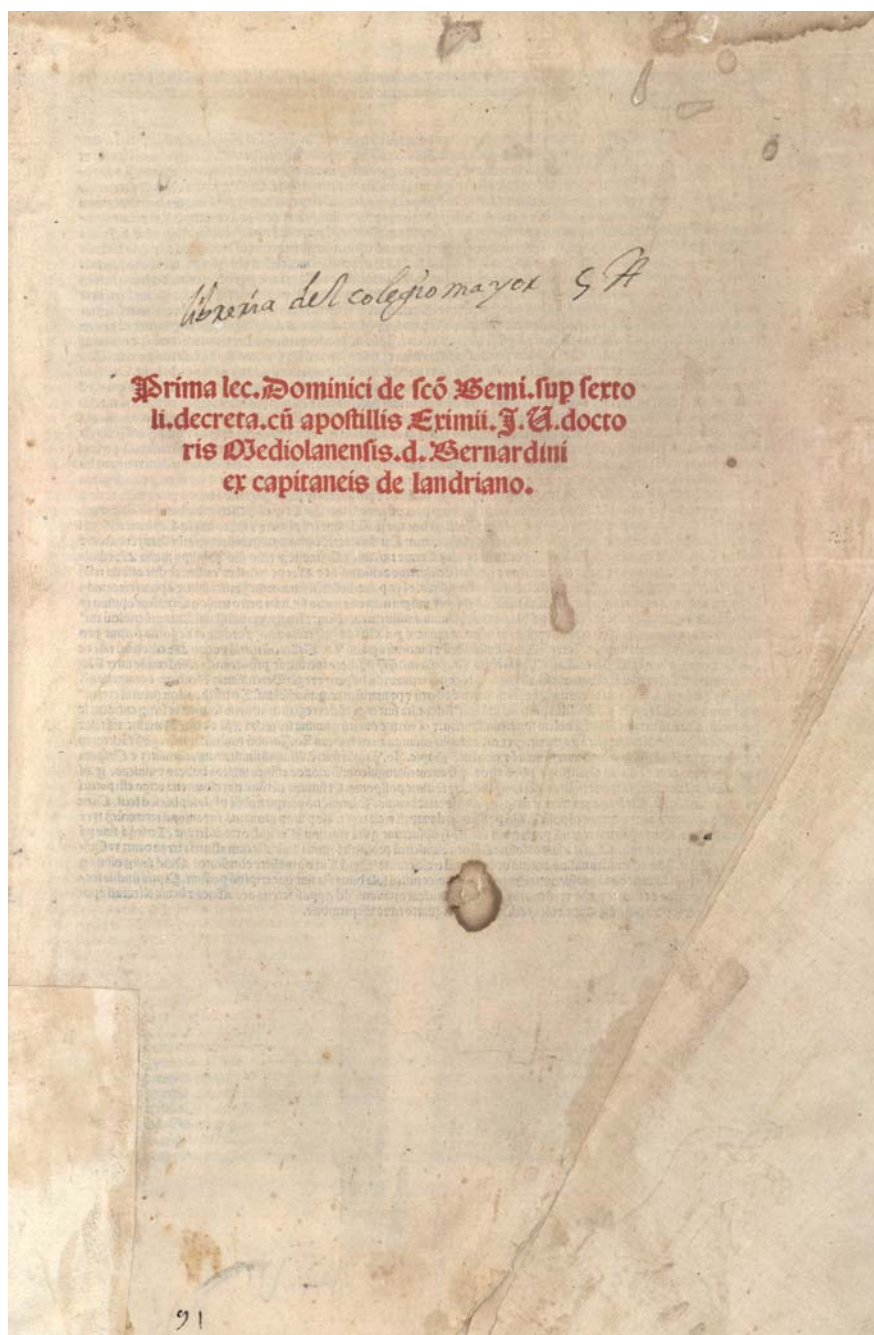 libreria del colegio mayor
Prima lec. Dominici de scō Gemi. sup sexto
li. decreta. cū apostillis Eximii. J. U. docto
ris Mediolanensis. d. Bernardini
ex capitaneis de landriano.
91